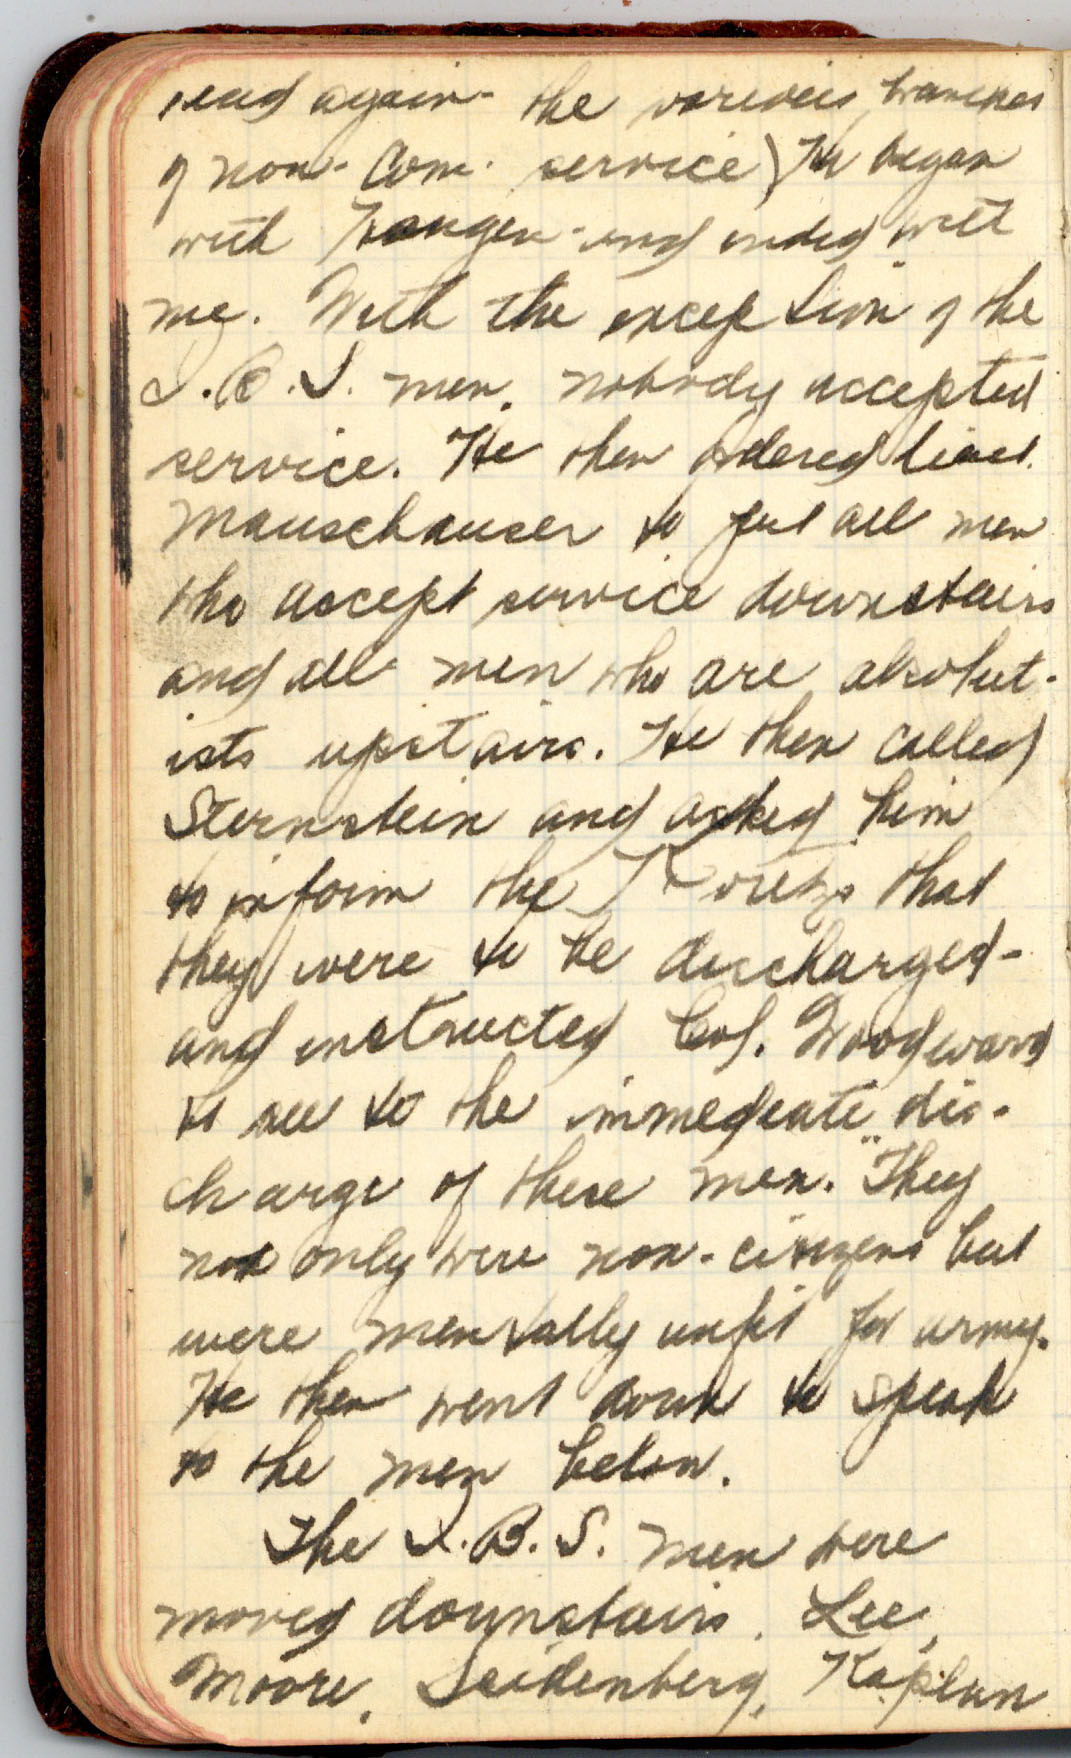 read again - the various branches
of non-Com. service) He began
with Haugen - and ended with
me. With the exception of the
I.B.S. men, nobody accepted
service. He then ordered Lieut.
Mauschauser to put all men
who accept service downstairs
and all men who are absolut-
ists upstairs. He then called
Sternstein and asked him
to inform the that
they were to be discharged -
and instructed Col. Woodward
to see to the immediate dis-
charge of these men. "They
not only were non-citizens but
were mentally unfit for army.
He then went down to speak
to the men below.
The I.B.S. men were
moved downstairs. Lee,
Moore, Seidenberg, Kaplan